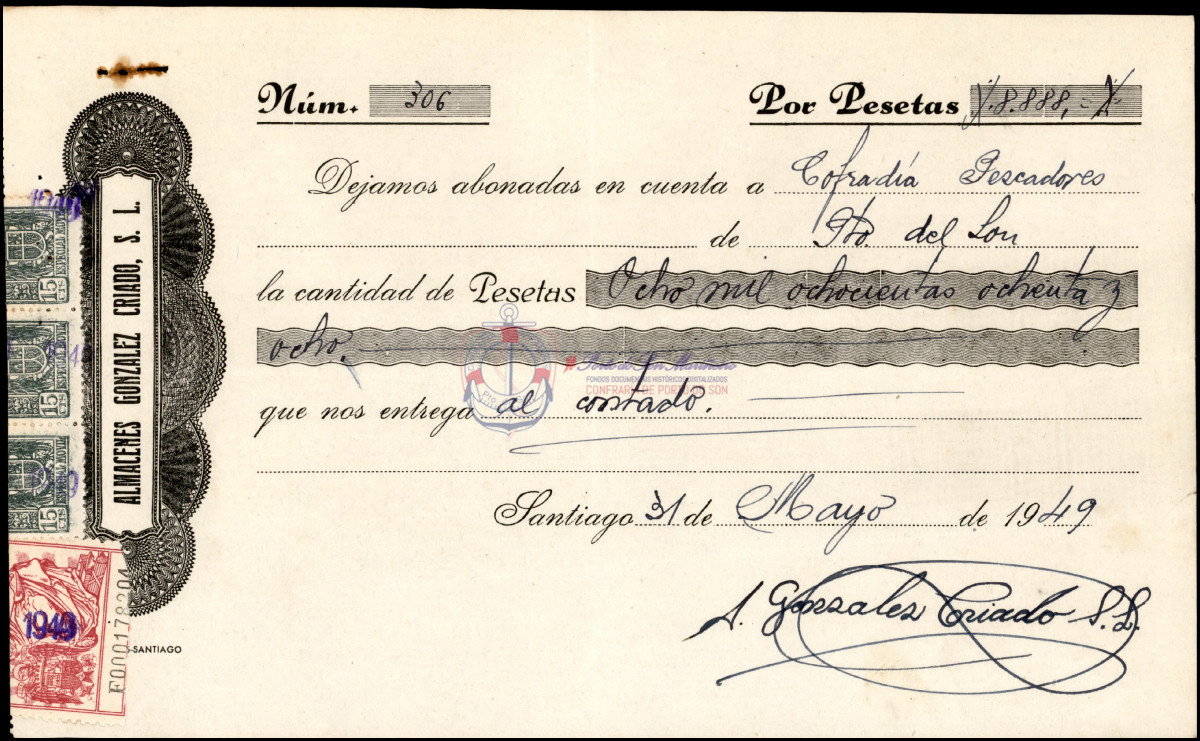 Núm. 306
Por Pesetas 8.888,=
Dejamos abonadas en cuenta a Cofradía Pescadores
de Pto. del Son
la cantidad de Pesetas Ocho mil ochocientas ochenta y
ocho.
que nos entrega al contado.
Santiago 31 de Mayo de 1949
A. Gonzalez Criado S.L.
ALMACENES GONZALEZ CRIADO, S. L.
15 CTS
15 CTS ESPECIAL MOVIL
1949
15 CTS ESPECIAL MOVIL
1949
1949
F0001178204
-SANTIAGO
Porto do Son Mariñeiro
FONDOS DOCUMENTAIS HISTÓRICOS DIXITALIZADOS
CONFRARÍA DE PORTO DO SON